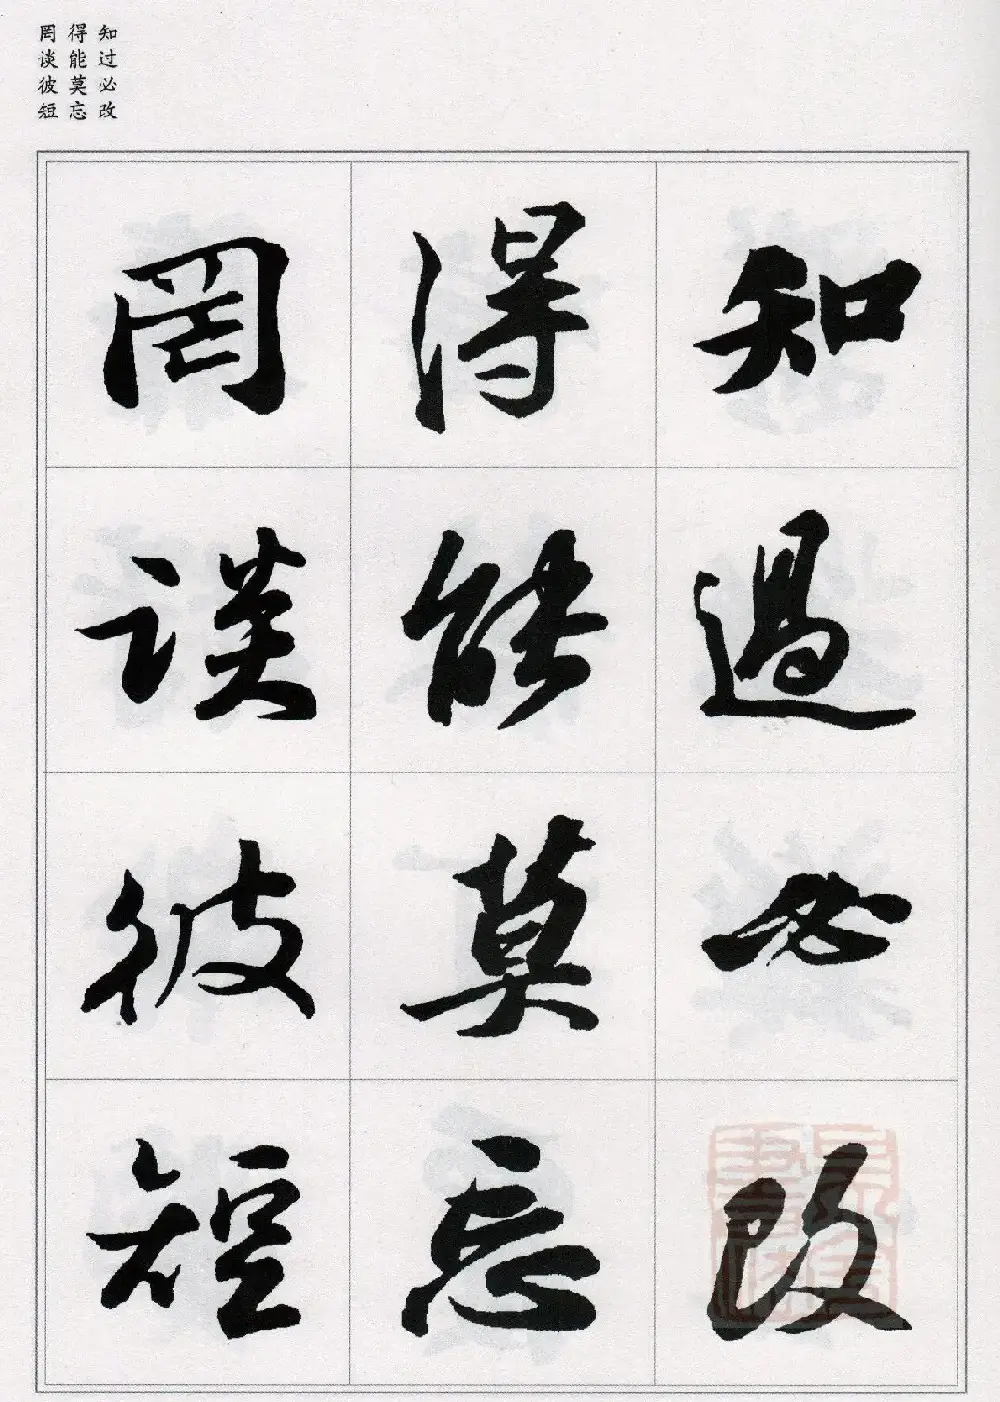 知过必改
得能莫忘
罔谈彼短
知過必改
得能莫忘
罔談彼短